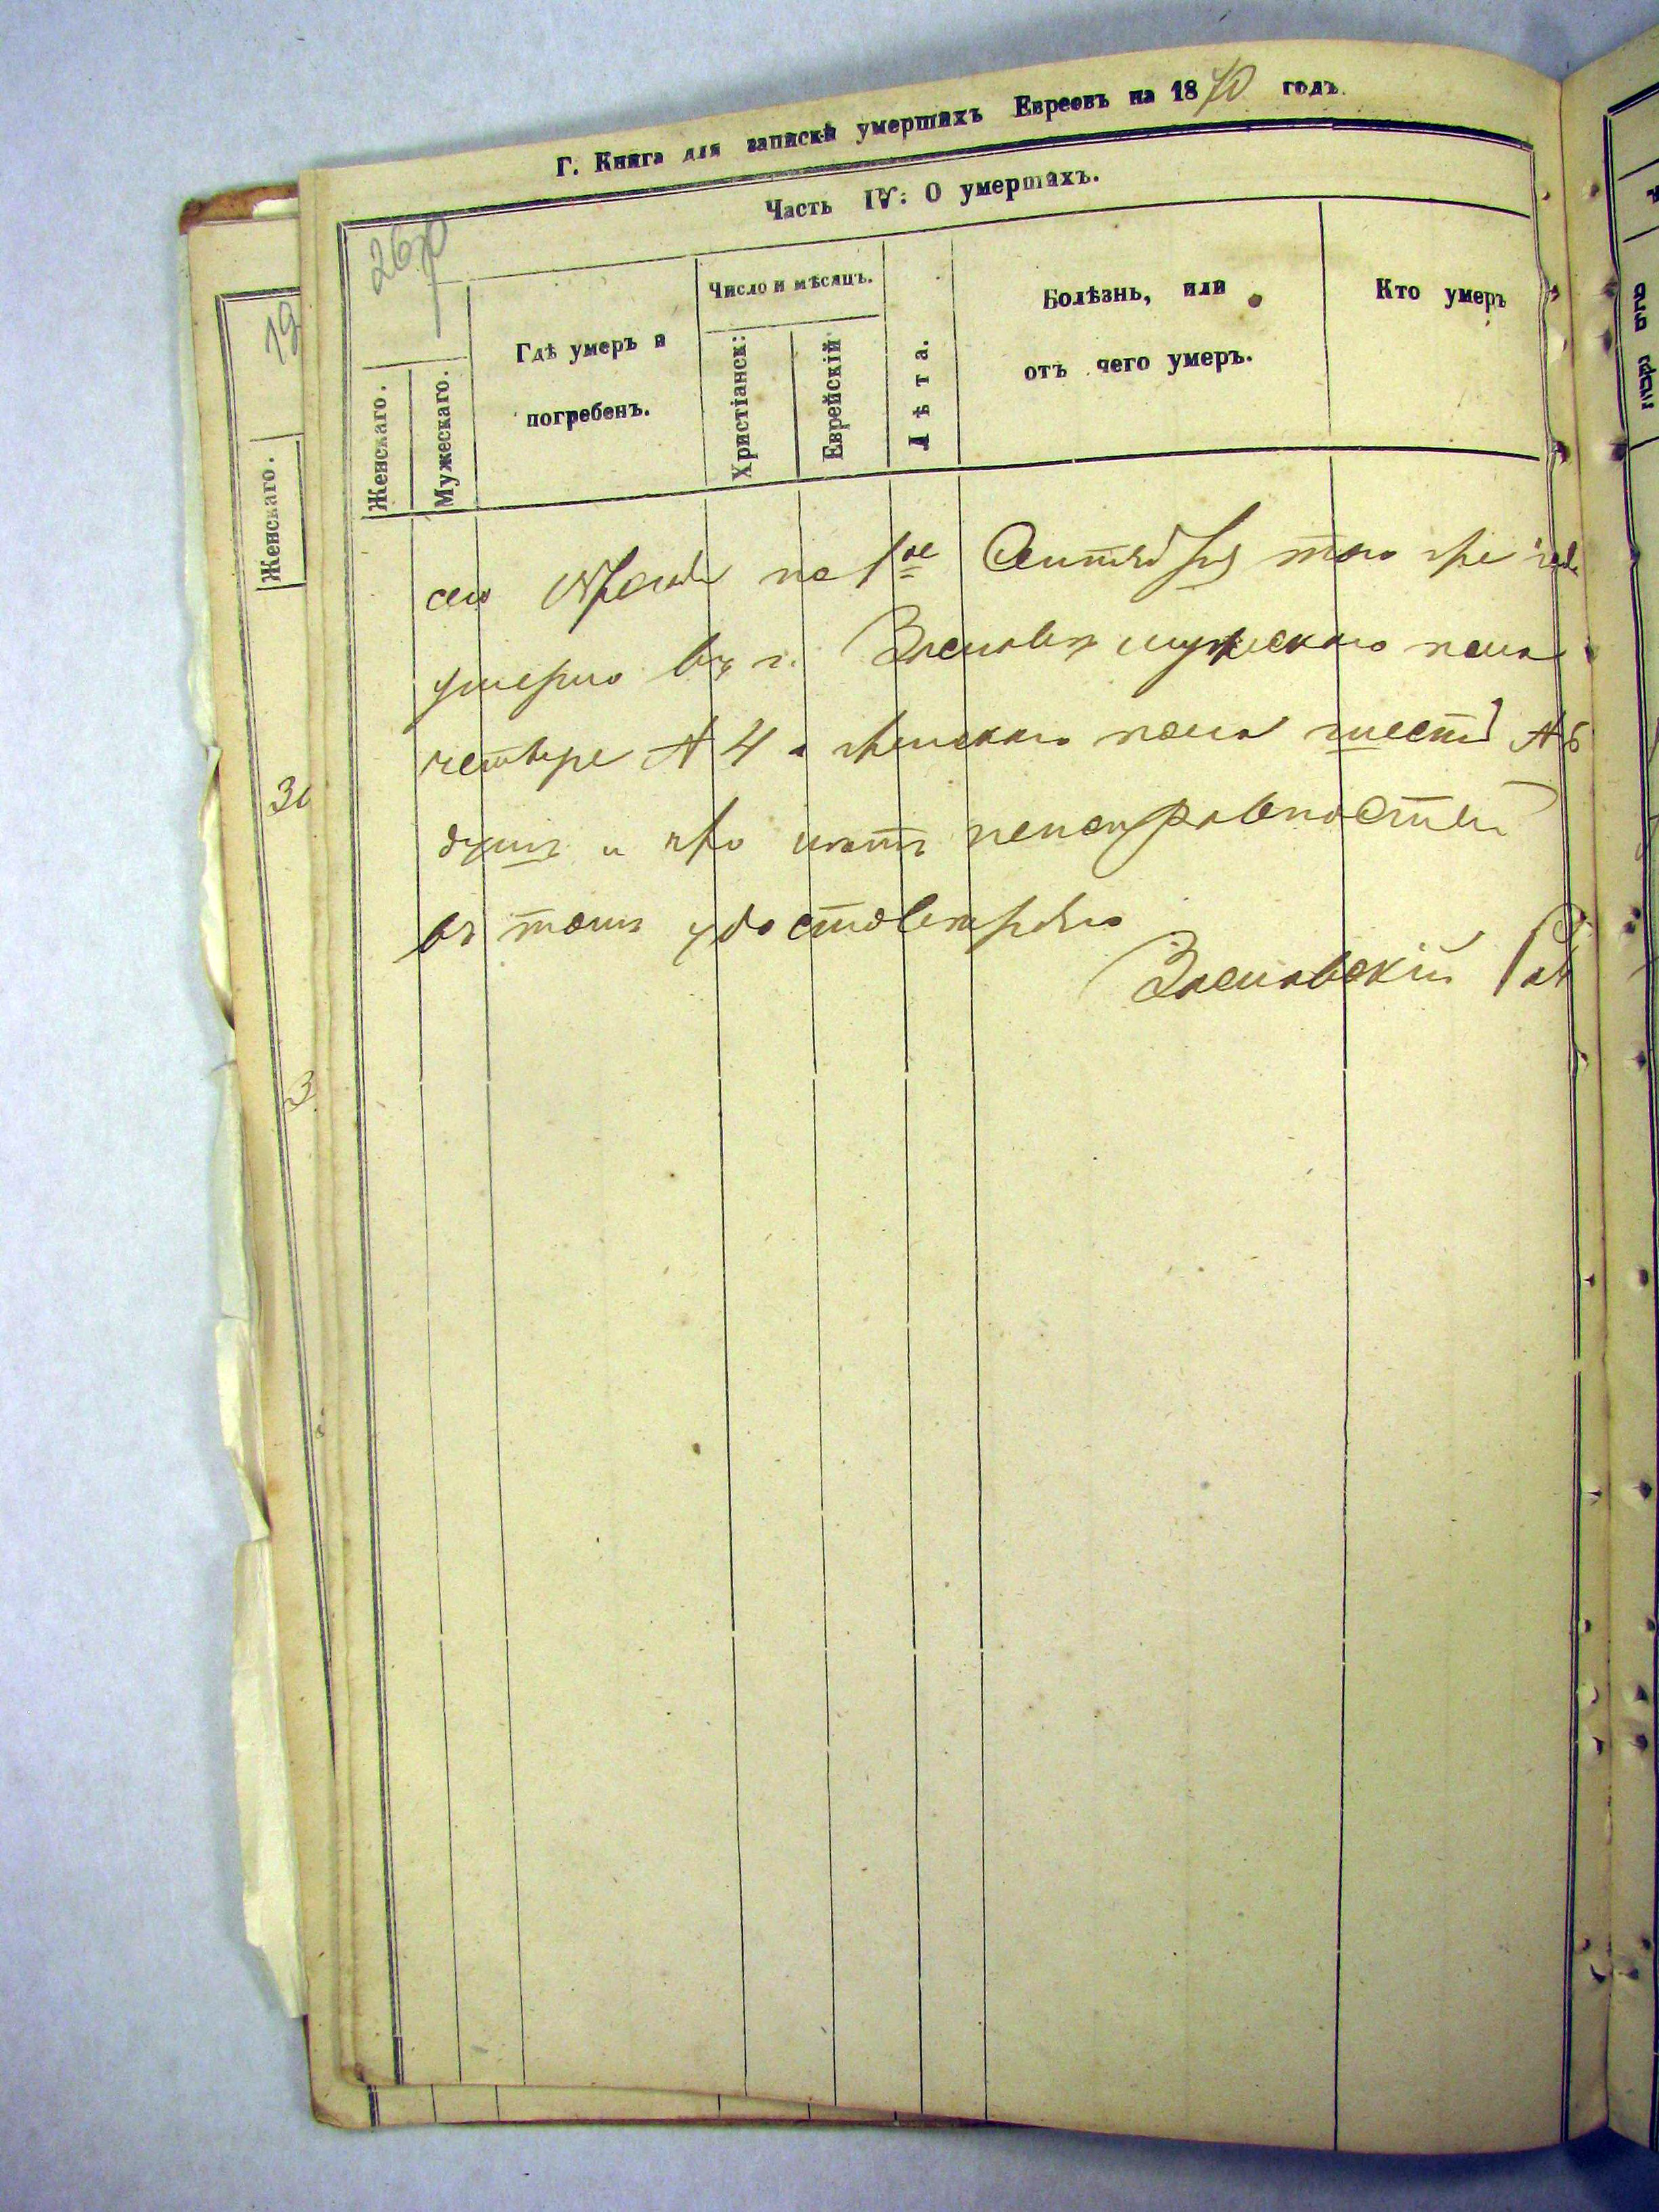 Г. Книга для записки умершихъ Евреевъ на 1870 годъ
Часть IV: О умершихъ.
Женскаго.
Мужескаго.
Гдѣ умеръ и
погребенъ.
Число и мѣсяцъ.
Христіанск:
Еврейскій
Лѣта.
Болѣзнь, или
отъ чего умеръ.
Кто умеръ
сего по 1ое Сентября того же года
умерло въ г. Заславѣ мужескаго пола
четыре № 4 а женскаго пола шесть № 6
душъ и что нѣтъ неисправностей
въ томъ удостовѣряю
Заславскій Рав
Женскаго.